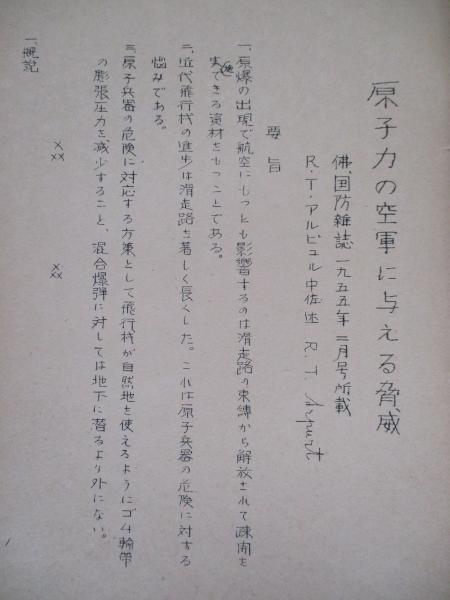 原子力の空軍に与える脅威
佛、国防雑誌 一九五五年二月号所載
R・T・アルピュル中佐述 R. T.
要旨
一、原爆の出現で航空にもっとも影響するのは滑走路の束縛から解放されて疎開を
実施できる資材をもつことである。
二、近代飛行機の進歩は滑走路を著しく長くした。これは原子兵器の危険に対する
悩みである。
三、原子兵器の危険に対応する方策として飛行機が自然地を使えるようにゴム輪帯
の膨張圧力を減少すること、混合爆弾に対しては地下に潜るより外にない。
×
××
×
××
一、概説